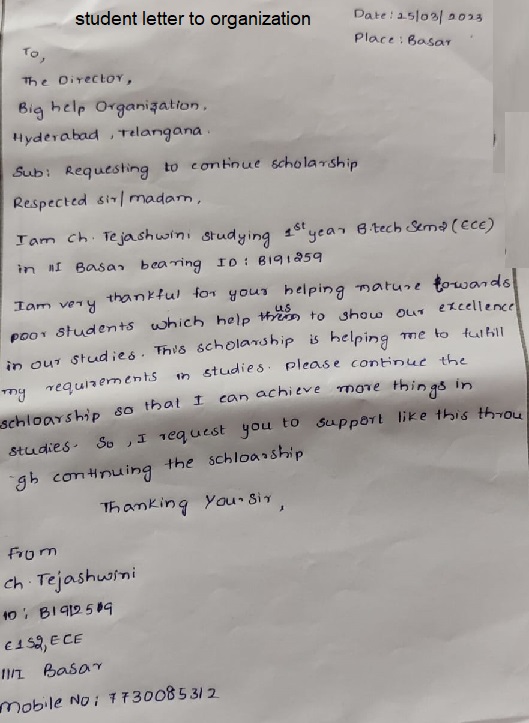 student letter to organization
Date: 25/03/2023
Place: Basar
To,
The Director,
Big help Organization.
Hyderabad, Telangana.
Sub: Requesting to continue scholarship
Respected sir/madam,
Iam Ch. Tejashwini studying 1st year B.tech Sem2 (ECE)
in IIIT Basar bearing ID: B191259
Iam very thankful for your helping nature towards
poor students which help us to show our excellence
in our studies. This scholarship is helping me to fulfill
my requirements in studies. please continue the
schloarship so that I can achieve more things in
studies. So, I request you to support like this throu
gh continuing the schloarship
Thanking Your Sir,
From
ch. Tejashwini
ID: B192519
E1S2, ECE
IIIT Basar
Mobile No: 7730085312